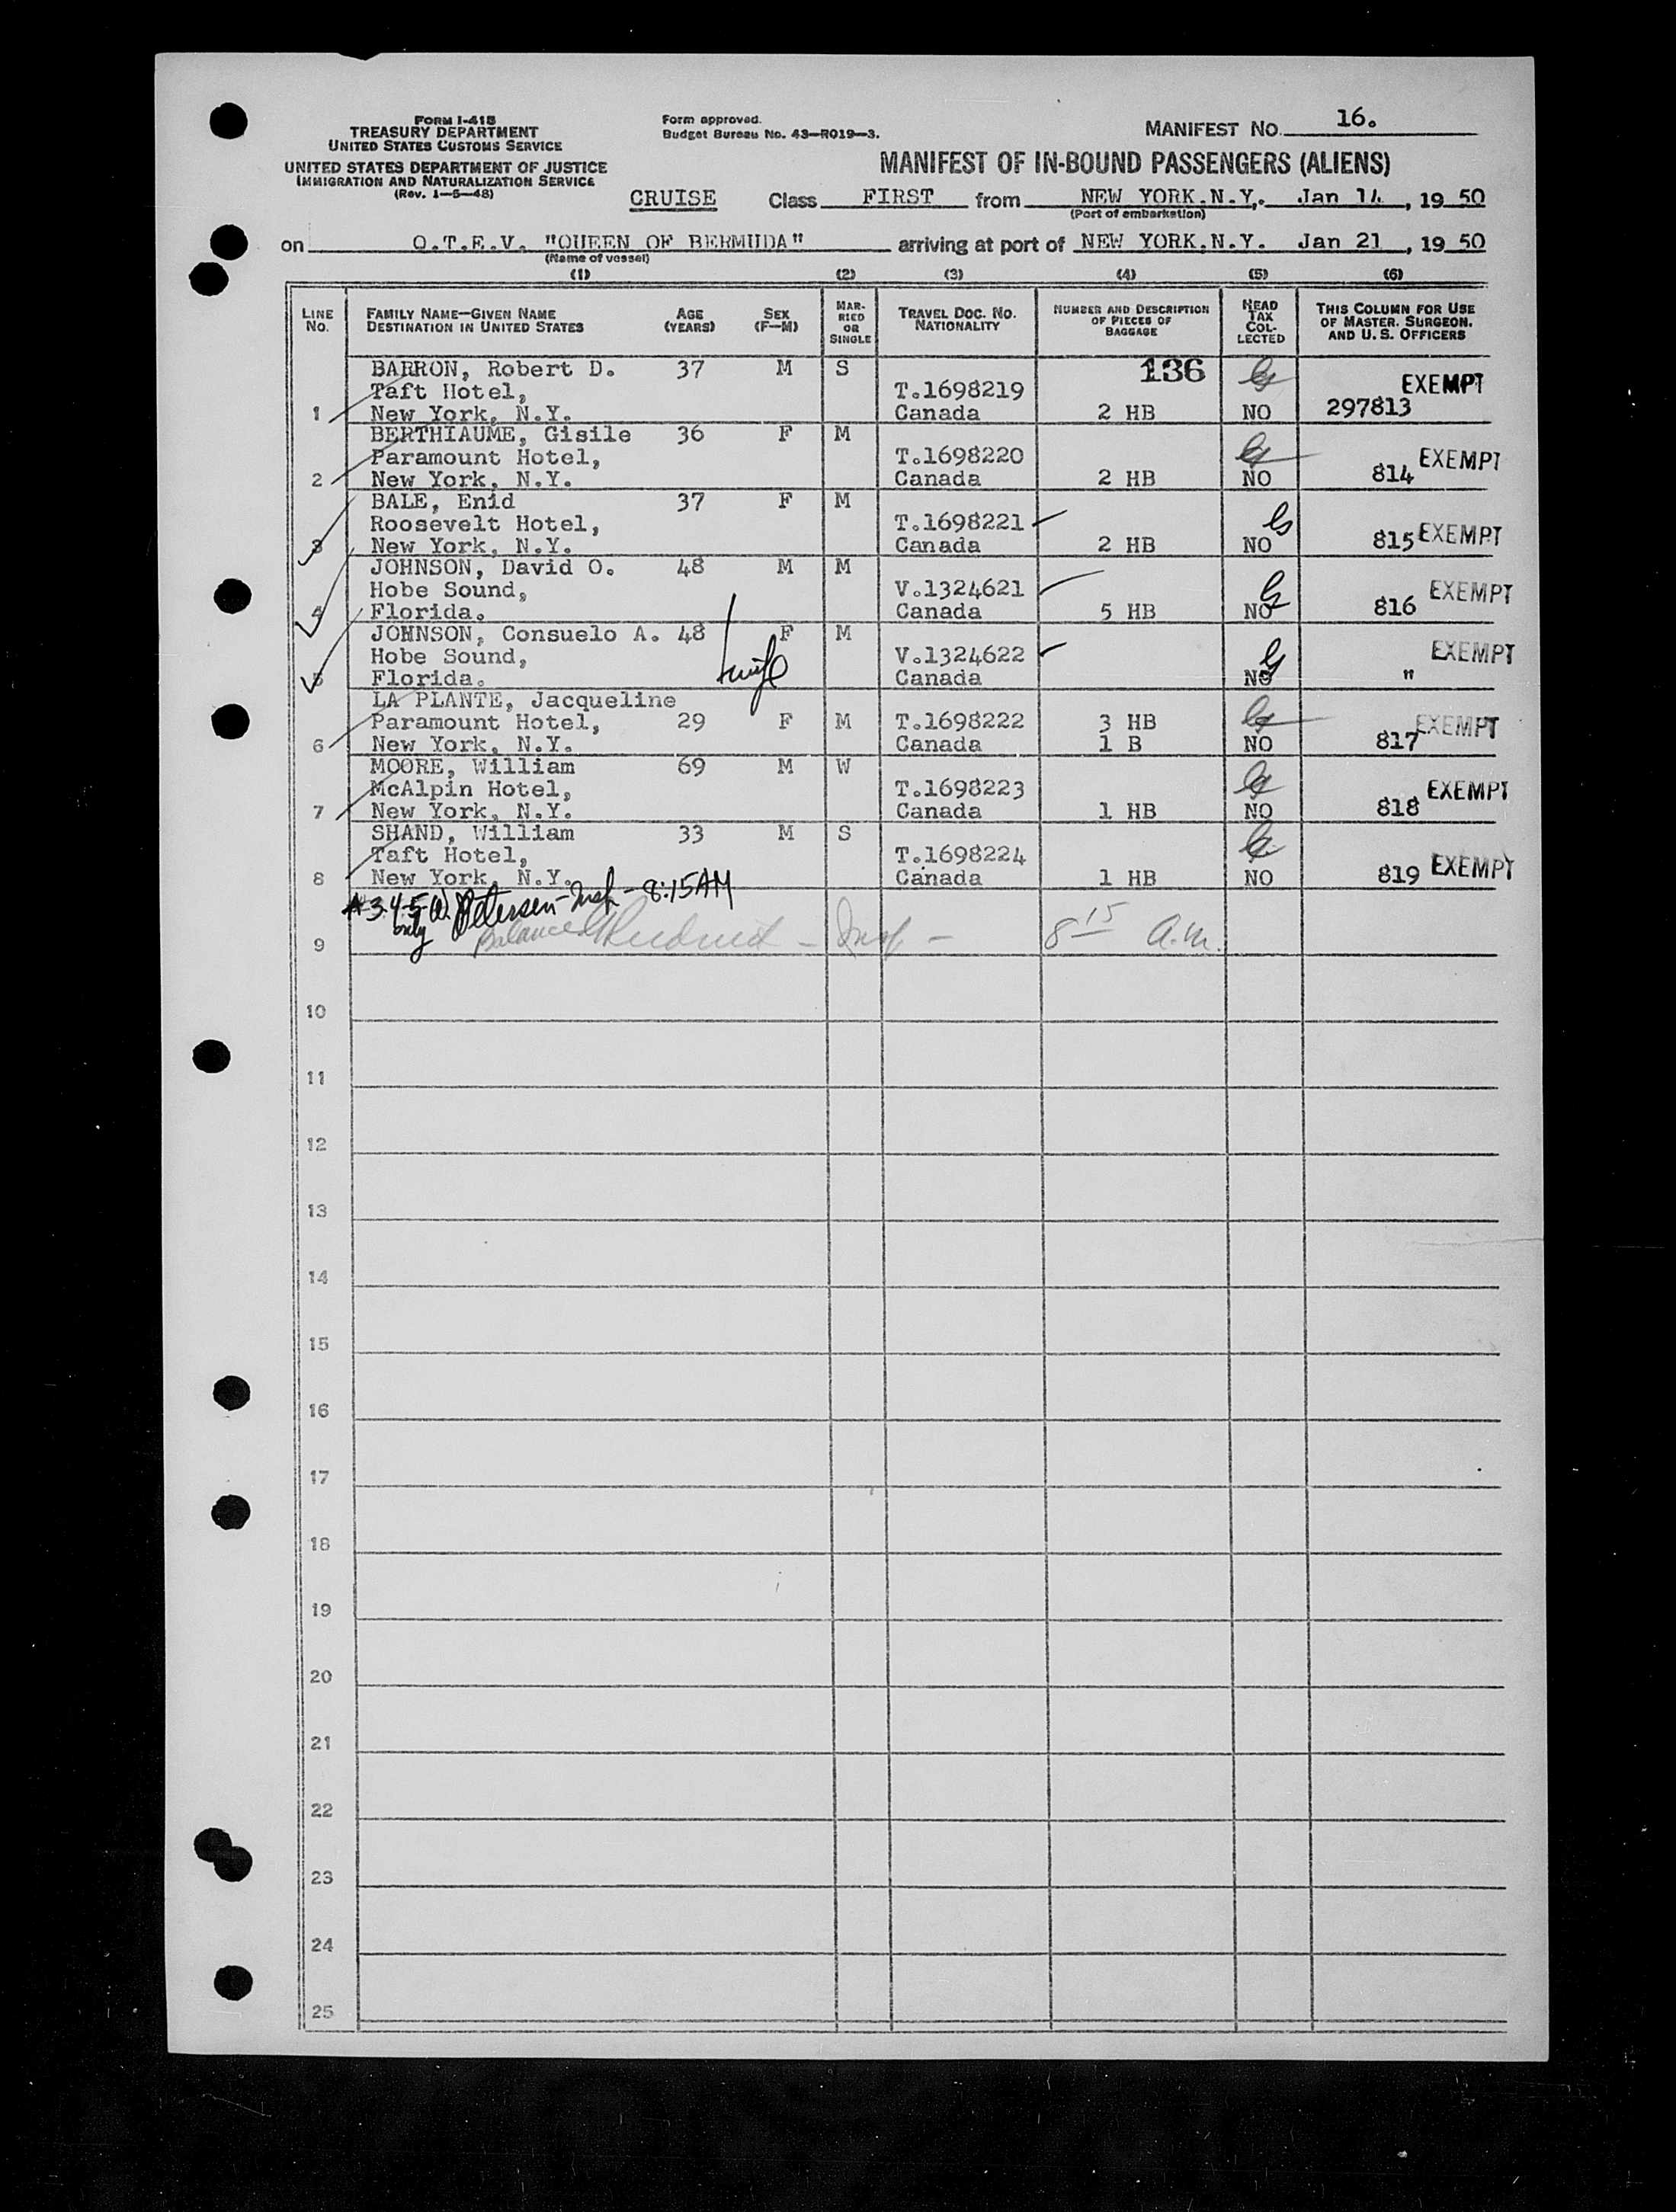 FORM I-415
TREASURY DEPARTMENT
UNITED STATES CUSTOMS SERVICE
UNITED STATES DEPARTMENT OF JUSTICE
IMMIGRATION AND NATURALIZATION SERVICE
(Rev. 1-5-48)
Form approved.
Budget Bureau No. 43-R019-3.
MANIFEST NO. 16.
MANIFEST OF IN-BOUND PASSENGERS (ALIENS)
CRUISE Class FIRST from NEW YORK.N.Y,. Jan 14 , 19 50
(Port of embarkation)
on Q.T.E.V. "QUEEN OF BERMUDA" arriving at port of NEW YORK.N.Y. Jan 21 , 19 50
(Name of vessel)
(1) (2) (3) (4) (5) (6)
LINE No. FAMILY NAME—GIVEN NAME DESTINATION IN UNITED STATES AGE (YEARS) SEX (F—M) MARRIED OR SINGLE TRAVEL DOC. NO. NATIONALITY NUMBER AND DESCRIPTION OF PIECES OF BAGGAGE HEAD TAX COLLECTED THIS COLUMN FOR USE OF MASTER, SURGEON, AND U. S. OFFICERS
BARRON, Robert D. 37 M S 136
Taft Hotel, T.1698219 EXEMPT
1 New York, N.Y. Canada 2 HB NO 297813
BERTHIAUME, Gisile 36 F M
Paramount Hotel, T.1698220 EXEMPT
2 New York, N.Y. Canada 2 HB NO 814
BALE, Enid 37 F M
Roosevelt Hotel, T.1698221
3 New York, N.Y. Canada 2 HB NO 815 EXEMPT
JOHNSON, David O. 48 M M
Hobe Sound, V.1324621 EXEMPT
4 Florida. Canada 5 HB NO 816
JOHNSON, Consuelo A. 48 F M
Hobe Sound, wife V.1324622 EXEMPT
5 Florida. Canada NO "
LA PLANTE, Jacqueline
Paramount Hotel, 29 F M T.1698222 3 HB EXEMPT
6 New York, N.Y. Canada 1 B NO 817
MOORE, William 69 M W
McAlpin Hotel, T.1698223 EXEMPT
7 New York, N.Y. Canada 1 HB NO 818
SHAND, William 33 M S
Taft Hotel, T.1698224
8 New York, N.Y. Canada 1 HB NO 819 EXEMPT
# 3-4-5 Petersen - Insp - 8:15 AM
only
9 Balance - Insp - 8 15 a.m.
10
11
12
13
14
15
16
17
18
19
20
21
22
23
24
25